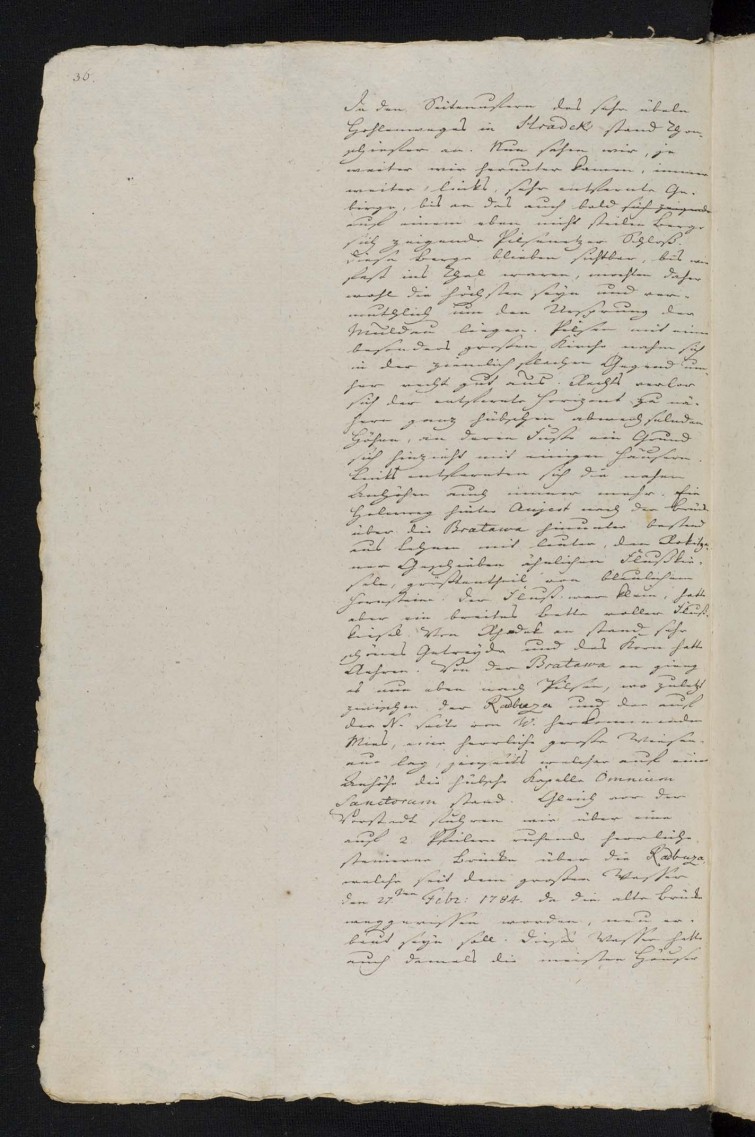 36.
In den Seitenufern des sehr übeln
Hohlenweges in Hradek stand Thon-
schiefer an. Nun sahen wir, je
weiter wir herunter kamen, immer
weiter, links, sehr entfernte Ge-
birge, bis an das auch bald sich zeigende
auf einem eben nicht steilen Berge
sich zeigende Pilsenetzer Schloß.
Diese Berge blieben sichtbar, bis wir
fast ins Thal waren, mochten daher
wohl die höchsten seyn und ver-
muthlich um den Ursprung der
Muldau liegen. Pilsen mit einer
besonders großen Kirche nahm sich
in der ziemlich flachen Gegend um-
her recht gut aus. Rechts verlor
sich der entfernte Horizont zu nä-
hern ganz hübschen abwechselnden
Höhen, an deren Fuße ein Grund
sich hinzieht mit einigen Häusern.
Links entfernten sich die nahen
Anhöhen auch immer mehr. Ein
Holweg hinter Aujest nach der Brücke
über die Bratawa hinunter bestand
aus Lehm mit lauter, den
Geschieben ähnlichen Flußkie-
seln, größtentheil von blaulichem
Hornstein. Der Fluß war klein, hatte
aber ein breites Bette voller Fluß-
kiesel. Von an stand sehr
schönes Getreyde und das Korn hatte
Aehren. Von der Bratawa an gieng
es nun eben nach Pilsen, wo zuletzt
zwischen der Radbuza und der auf
der N. Seite von W. herkommenden
Mies, eine herrliche große Wiesen-
aue lag, jenseits welcher auf einer
Anhöhe die hübsche Kapelle Omnium
Sanctorum stand. Gleich vor der
Vorstadt fuhren wir über eine
auf 2 Pfeilern ruhende herrliche
steinerne Brücke über die Radbuza,
welche seit dem großen Wasser
den 27ten Febr: 1784. da die alte Brücke
weggerissen worden, neu er-
baut seyn soll. Dieses Wasser hatte
auch damals die meisten Häuser